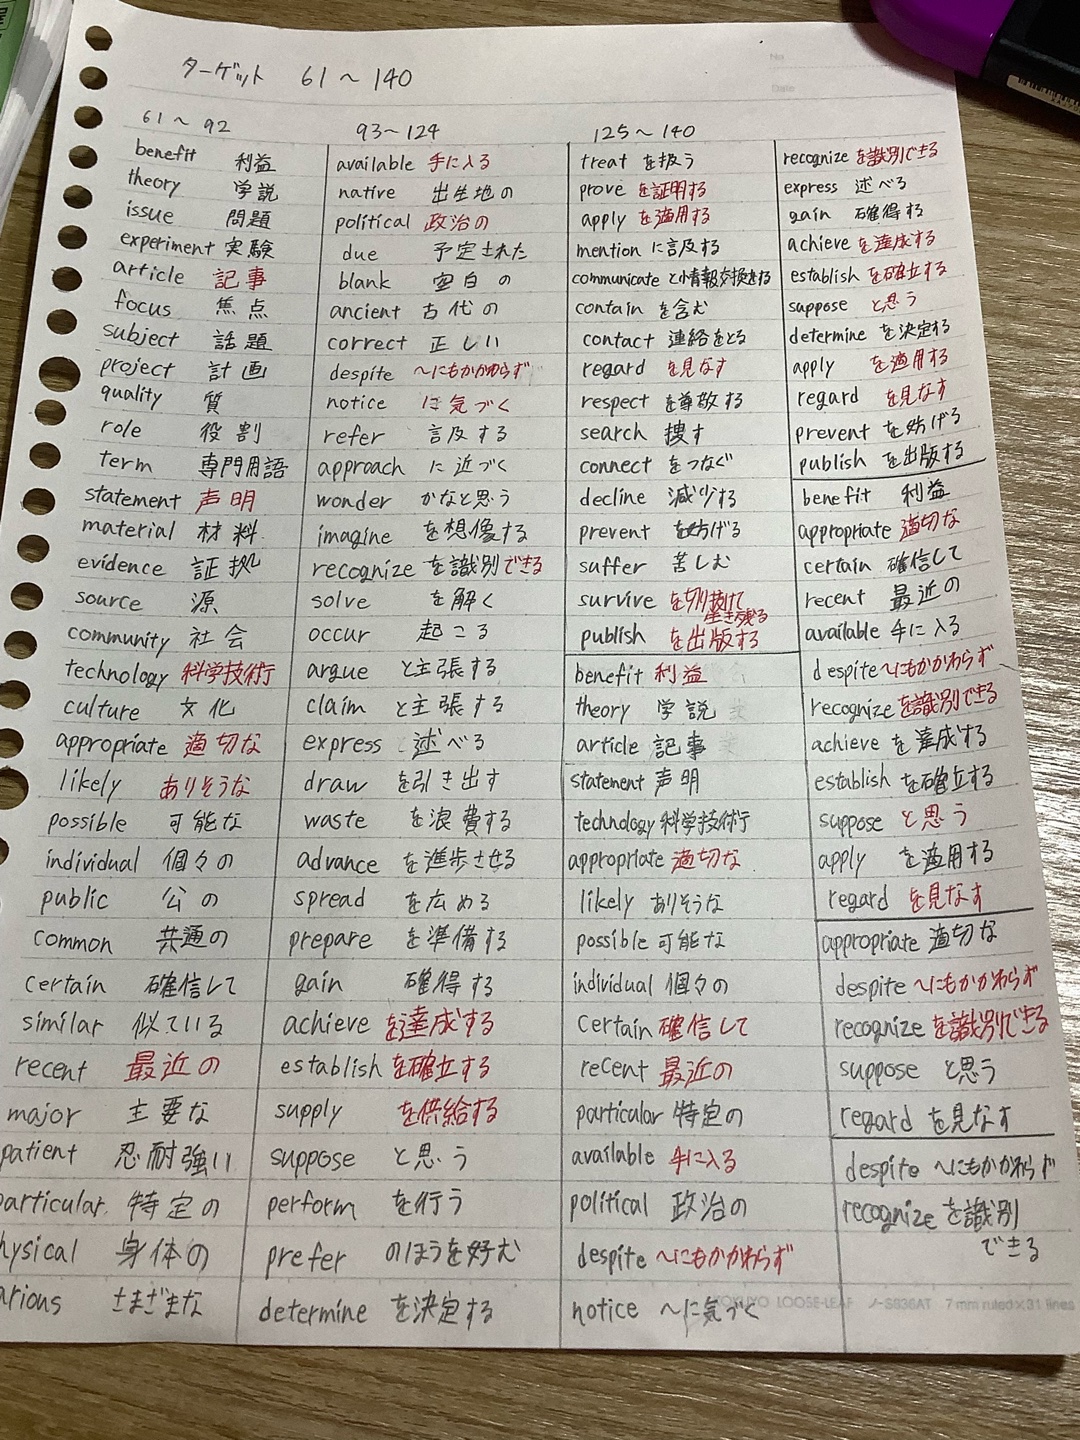 ターゲット 61～140
61～92
benefit 利益
theory 学説
issue 問題
experiment 実験
article 記事
focus 焦点
subject 話題
project 計画
quality 質
role 役割
term 専門用語
statement 声明
material 材料
evidence 証拠
source 源
community 社会
technology 科学技術
culture 文化
appropriate 適切な
likely ありそうな
possible 可能な
individual 個々の
public 公の
common 共通の
certain 確信して
similar 似ている
recent 最近の
major 主要な
patient 忍耐強い
articular 特定の
hysical 身体の
arious さまざまな
93～124
available 手に入る
native 出生地の
political 政治の
due 予定された
blank 空白の
ancient 古代の
correct 正しい
despite ～にもかかわらず
notice に気づく
refer 言及する
approach に近づく
wonder かなと思う
imagine を想像する
recognize を識別できる
solve を解く
occur 起こる
argue と主張する
claim と主張する
express 述べる
draw を引き出す
waste を浪費する
advance を進歩させる
spread を広める
prepare を準備する
gain 確得する
achieve を達成する
establish を確立する
supply を供給する
suppose と思う
perform を行う
prefer のほうを好む
determine を決定する
125～140
treat を扱う
prove を証明する
apply を適用する
mention に言及する
communicate と情報交換をする
contain を含む
contact 連絡をとる
regard を見なす
respect を尊敬する
search 捜す
connect をつなぐ
decline 減少する
prevent を妨げる
suffer 苦しむ
survive を切り抜けて
生き残る
publish を出版する
benefit 利益
theory 学説
article 記事
statement 声明
technology 科学技術
appropriate 適切な
likely ありそうな
possible 可能な
individual 個々の
certain 確信して
recent 最近の
particular 特定の
available 手に入る
political 政治の
despite ～にもかかわらず
notice ～に気づく
recognize を識別できる
express 述べる
gain 確得する
achieve を達成する
establish を確立する
suppose と思う
determine を決定する
apply を適用する
regard を見なす
prevent を妨げる
publish を出版する
benefit 利益
appropriate 適切な
certain 確信して
recent 最近の
available 手に入る
despite ～にもかかわらず
recognize を識別できる
achieve を達成する
establish を確立する
suppose と思う
apply を適用する
regard を見なす
appropriate 適切な
despite ～にもかかわらず
recognize を識別できる
suppose と思う
regard を見なす
despite ～にもかかわらず
recognize を識別
できる
No.
Date
KOKUYO LOOSE-LEAF ノ-S836AT 7 mm ruled×31 lines